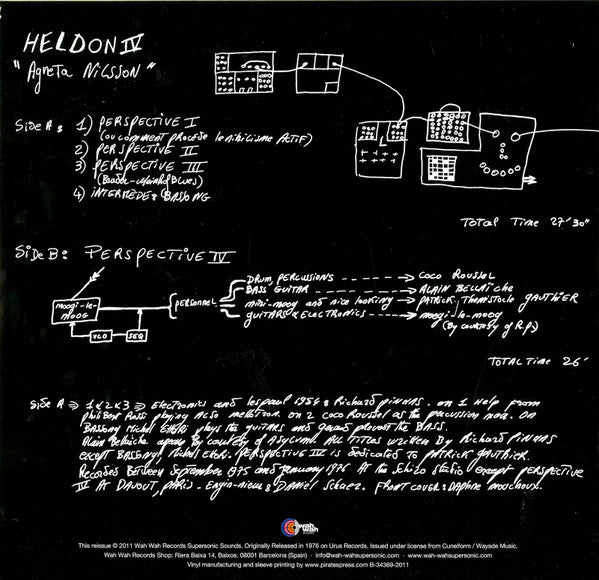 HELDON IV
"Agneta Nilsson"
Side A: 1) PERSPECTIVE I
(ou comment procède le nihilisme Actif)
2) PERSPECTIVE II
3) PERSPECTIVE III
(Baader-Meinhof Blues)
4) intermède: BASSONG
Total Time 27'30"
Side B: PERSPECTIVE IV
moogi-le-moog
VCO
SEQ
PERSONNEL
DRUM, PERCUSSIONS → COCO Roussel
BASS GUITAR → ALAIN BELLAiche
mini-moog and nice looking → PATRICK Themistocle GAUTHIER
guitars & ELECTRONICS → moogi-le-moog
(By courtesy of R.p.)
TOTAL Time 26'
Side A ⇒ 1x2x3 ⇒ Electronics and lespaul 1954: Richard pinhas. on 1 help from
philibert Rossi playing Also melletron. on 2 coco Roussel as the percussion none. On
BASSONG Michel Ettori plays the guitars and BASS.
Alain Bellaiche appears by courtesy of Asylum. All titles written By Richard PINHAS
except BASSONG: Michel Ettori. PERSPECTIVE IV is dedicated to PATRICK GAUTHIER.
Recorded Between September 1975 and january 1976 At the Schizo studio except PERSPECTIVE
IV At DAVOUT, PARIS. Front cover:
wah wah
This reissue © 2011 Wah Wah Records Supersonic Sounds. Originally Released in 1976 on Urus Records. Issued under license from Cuneiform / Wayside Music.
Wah Wah Records Shop: Riera Baixa 14, Baixos. 08001 Barcelona (Spain) · info@wah-wahsupersonic.com · www.wah-wahsupersonic.com
Vinyl manufacturing and sleeve printing by www.piratespress.com B-34369-2011